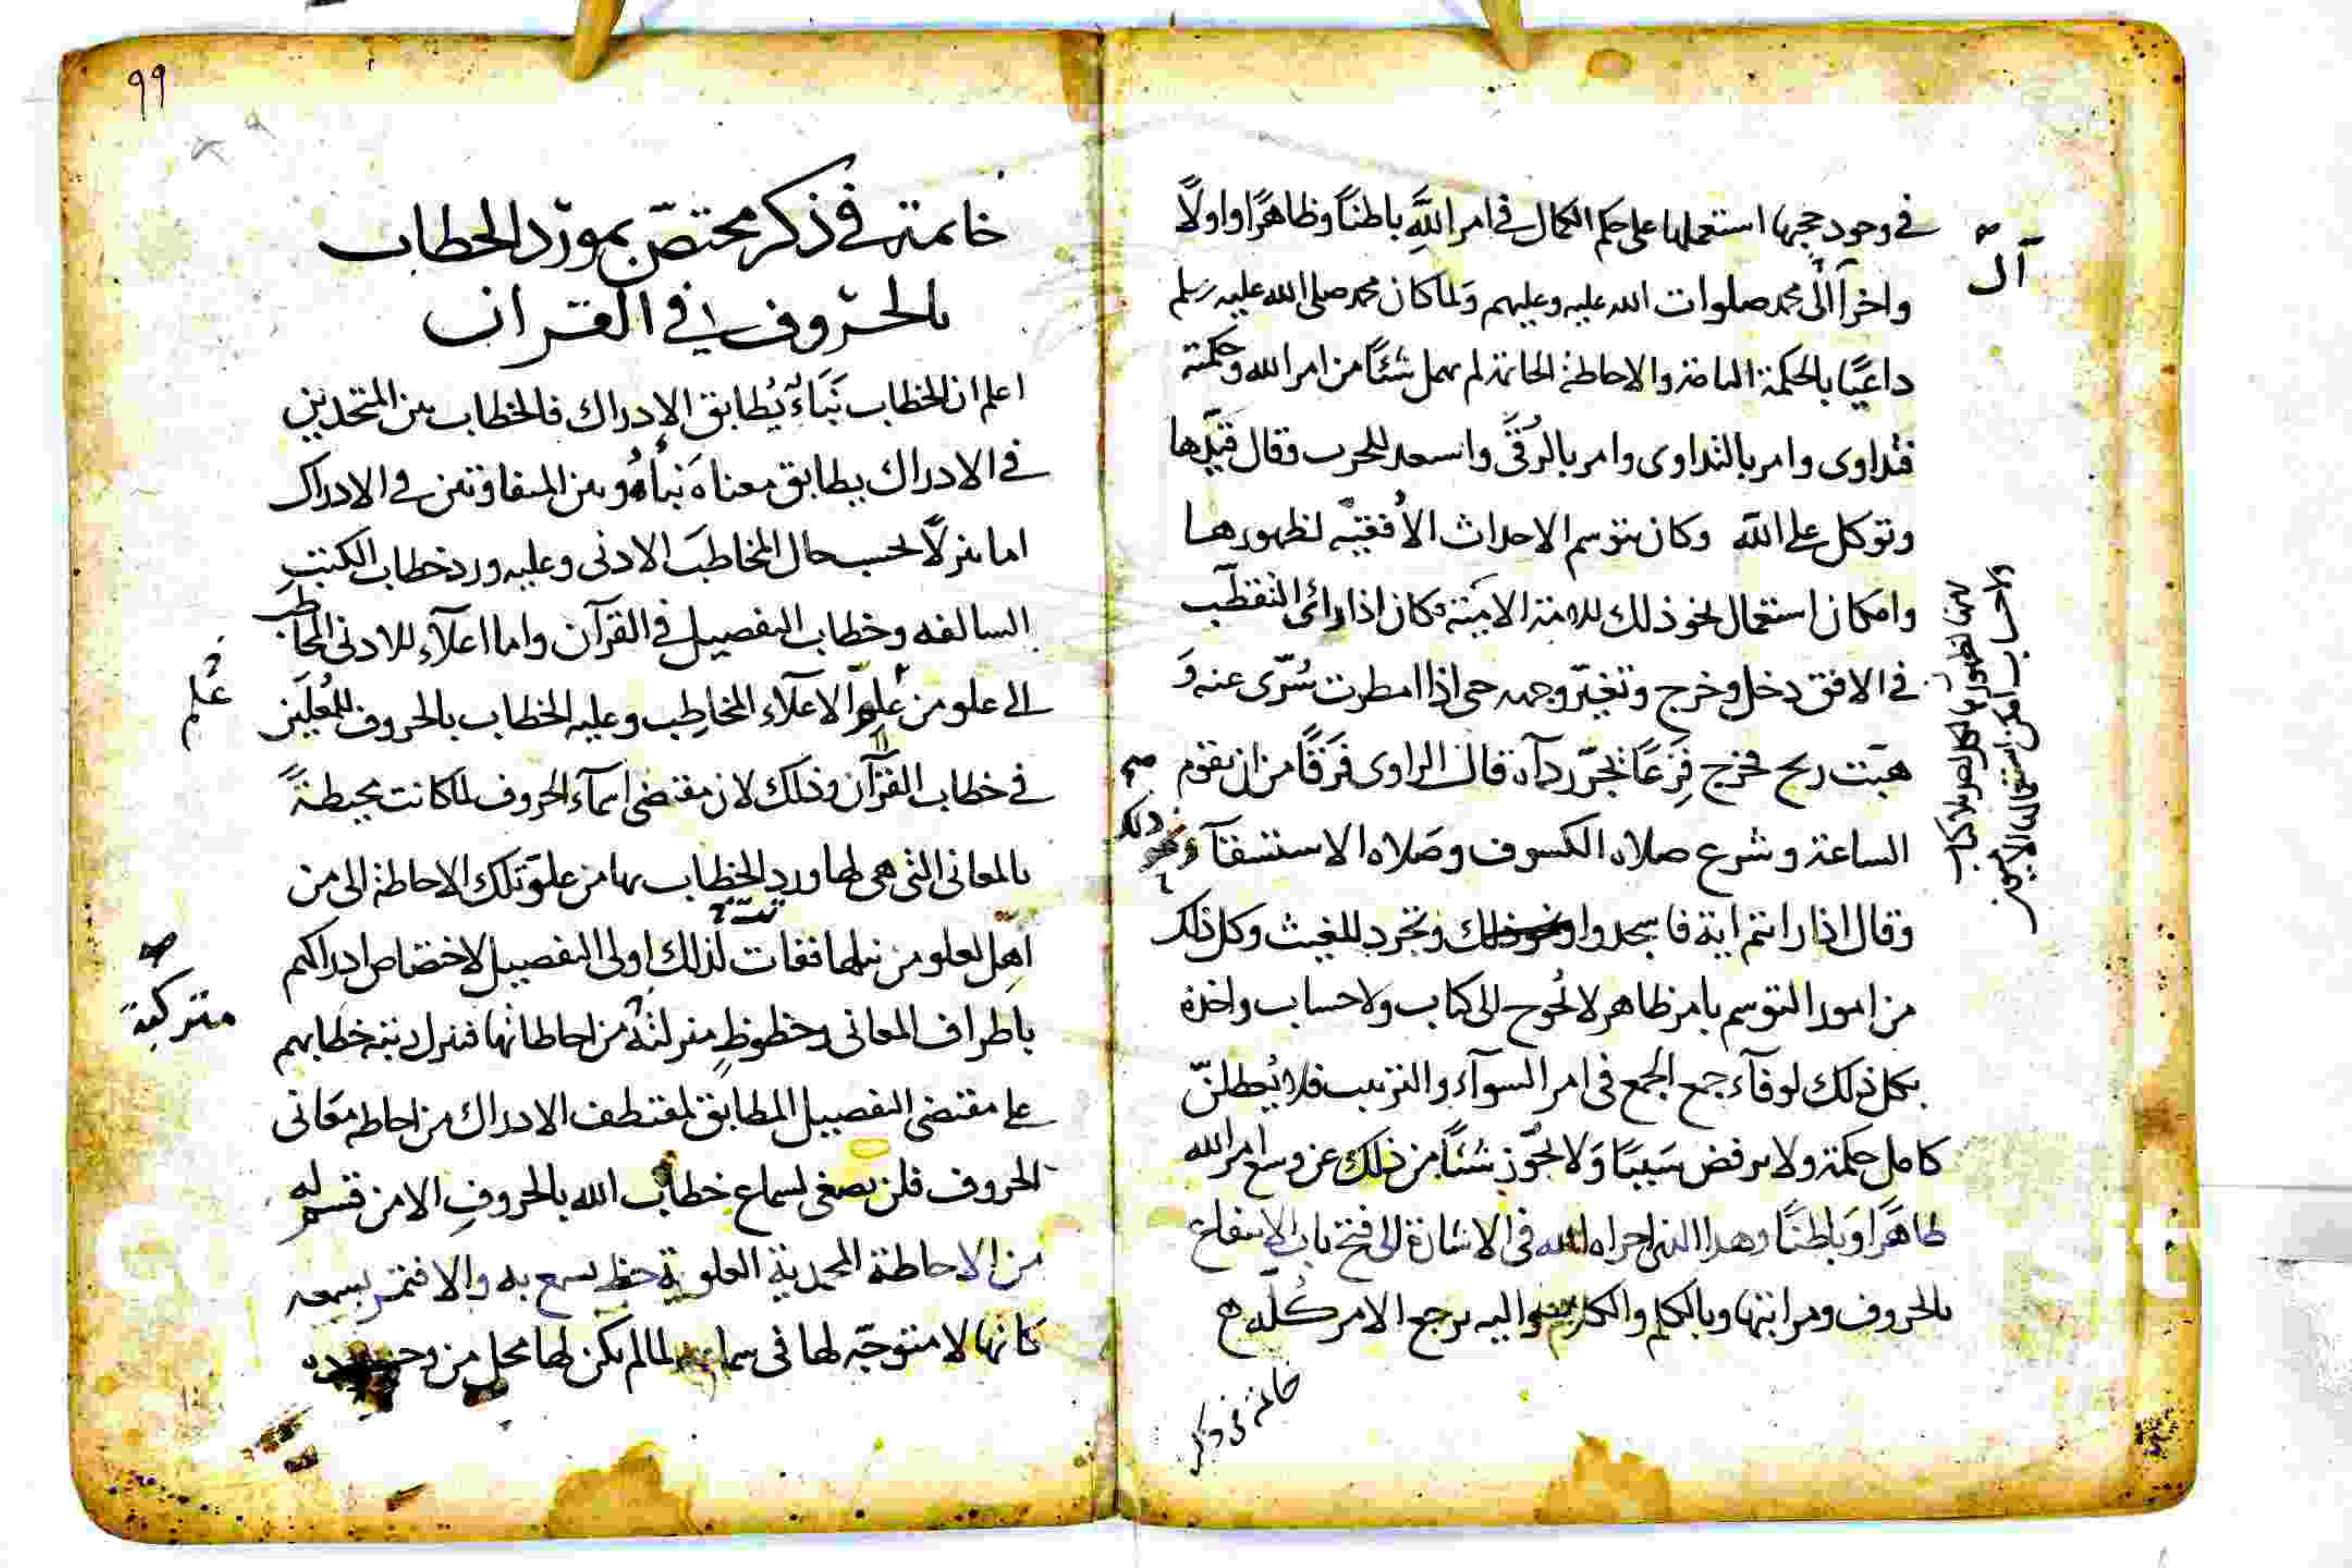 في وجود حجبها استعملها على حكم الكمال في امر الله باطناً وظاهراً واولاً
آل
واخراً الى محمد صلوات الله عليه وعليهم ولما كان محمد صلى الله عليه وسلم
داعياً بالحكمة والاحاطة لم يهمل شئاً من امر الله وحكمته
فتداوى وامر بالتداوى وامر بالرقى واستعد للحرب وقال قيدها
وتوكل على الله وكان يتوسم الاحداث الأفقيّه لظهورها
وامكان استعمال نحو ذلك للامة الاميّة فكان اذا رائى التقطّب
في الافق دخل وخرج وتغيّر وجهه حتى اذا امطرت سُرّى عنه وَ
هبّت ريح فخرج فزعاً يجرّ ردآه قال الراوى فَرَقًا من ان تقوم
الساعة وشرع صلاه الكسوف وصلاه الاستسقآ
ذلك
وقال اذا رايتم اية فاسجدوا ونحو ذلك وتجرد للغيث وكل ذلك
من امور التوسم بامر ظاهر لا يُحوج الى كتاب ولا حساب واخذه
بكل ذلك لوفآء جمع الجمع في امر السوآء والترتيب فلا يُبطلنّ
كامل حكمة ولا يرفض سَببًا وَلا يُخرّج شئاً من ذلك عن وسع امر الله
ظاهَراً وَباطنًا وهذا الذى اجراه الله في الاشارة الى فتح باب الانتفاع
بالحروف ومراتبها وبالكلم والكلام واليه يرجع الامر كلّه
ولا حساب امكن استعماله الاميين
خاتمة في ذكر
٩٩
خاتمة في ذكر مختصّ بمورد الخطاب
بالحروف في القران
اعلم ان الخطاب نَبَاءٌ يُطابق الادراك فالخطاب بين المتحدين
في الادراك يطابق معناه نبأهُ وبين المتفاوتين في الادراك
اما تنزلاً لحسب حال المخاطبَ الادنى وعليه ورد خطاب الكتب
السالفه وخطاب التفصيل في القرآن واما اعلآء للادنى المخاطب
الى علو من علو الاعلآء المخاطِب وعليه الخطاب بالحروف للمُعلَين
في خطاب القرآن وذلك لان مقتضى اسمآء الحروف لما كانت محيطةً
بالمعانى التي هي لها ورد الخطاب بها من علوّ تلك الاحاطة الى من
اهِّل لعلو من نيلها ففات لذلك اولى التفصيل لاختصاص ادراكهم
متركبة
باطراف المعانى وحظوظٍ منزلته من احاطاتها فنزل رتبة خطابهم
على مقتضى التفصيل المطابق لمقتطف الادراك من احاطه معَانى
الحروف فلن يصغى لسماع خطاب الله بالحروفِ الا من قسم له
من الاحاطة المحمدية العلوية حظ يسمع به والا فتمر بسمعه
كانها لا متوجّه لها في لما لم يكن لها محل من